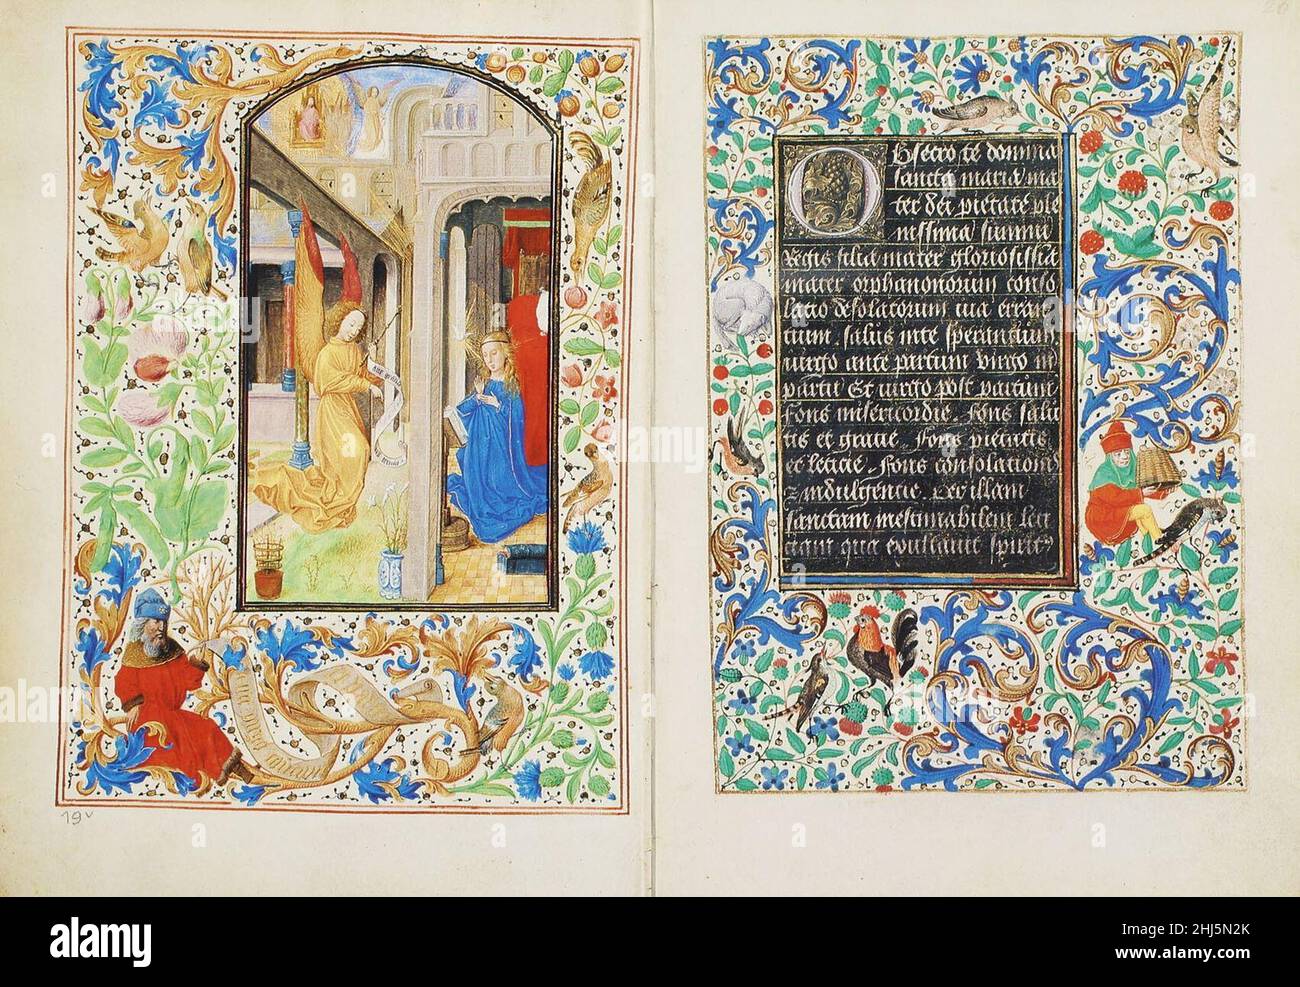 19v
Obsecro te domina
sancta maria ma
ter dei pietate ple
nissima summi
Regis filia mater gloriosissia
mater orphanorium conso
lacio desolatorum via erran
tium. salus inte sperantium
virgo ante partum virgo in
partu Et virgo post partum
fons misericordie. fons salu
tis et gracie. fons pietatis
et leticie. fons consolationis
z indulgencie. Per illam
sanctam inestimabilem leti
ciam qua exultauit spirit9
alamy
Image ID: 2HJ5N2K
www.alamy.com